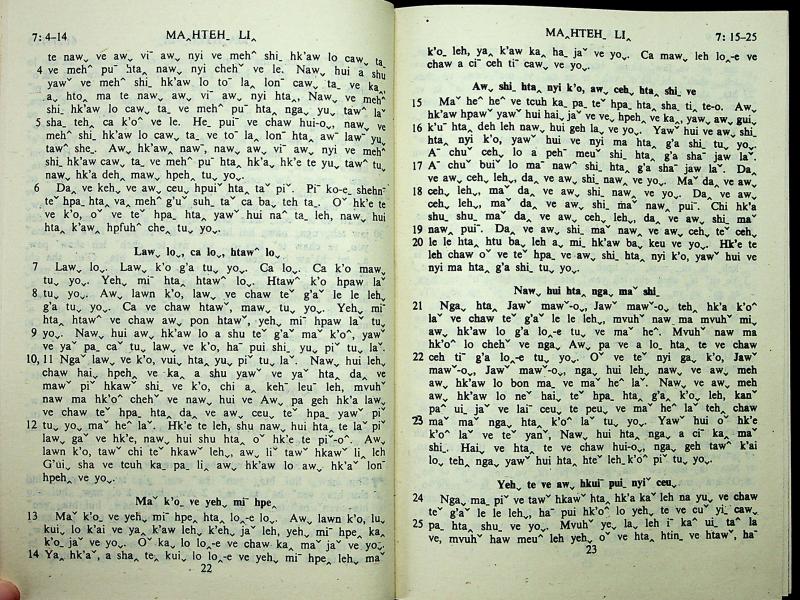 7: 4–14 MA˰HTEH˗ LI˰
te naw˯ ve aw˯ viˉ aw˯ nyi ve mehˆ shi˗ hk'aw lo caw˯ ta˗
4 ve mehˆ puˉ hta˰ naw˯ nyi chehˇ ve le. Naw˯ hui a shu
yawˇ ve mehˆ shi˗ hk'aw lo toˉ la˰ lonˉ caw˯ ta˗ ve ka˰
a˯ hto˰ ma te naw˯ aw˯ viˉ aw˯ nyi hta˰ Naw˯ ve mehˆ
shi˗ hk'aw lo caw˯ ta˗ ve mehˆ puˉ hta˰ nga˯ yu˯ tawˆ laˇ
5 sha˗ teh˯ ca k'oˆ ve le. He˗ puiˉ ve chaw hui-o˯ naw˯ ve
mehˆ shi˗ hk'aw lo caw˯ ta˗ ve toˉ la˰ lonˉ hta˰ awˇ lawˇ yu˯
tawˆ she˗. Aw˯ hk'aw˰ nawˉ, naw˯ aw˯ viˉ aw˯ nyi ve mehˆ
shi˗ hk'aw caw˯ ta˗ ve mehˆ puˉ hta˰ hk'a˰ hk'e te yu˯ tawˆ tu˯
naw˯ hk'a deh˰ maw˯ hpeh˰ tu˯ yo˯.
6 Da˰ ve keh˯ ve aw˯ ceu˯ hpuiˇ hta˰ taˇ piˇ. Piˉ ko-e˯ shehnˉ
teˇ hpa˰ hta˰ va˰ mehˆ g'uˇ suh˰ taˇ ca ba˰ teh ta˗. Oˇ hk'e te
ve k'o, oˇ ve teˇ hpa˰ hta˰ yawˇ hui naˆ ta˗ leh, naw˯ hui
hta˰ k'aw˰ hpfuhˆ che˰ tu˯ yo˯.
Law˯ lo˯, ca lo˯, htawˆ lo˯
7 Law˯ lo˯. Law˯ k'o g'a tu˯ yo˯. Ca lo˯. Ca k'o maw˯
tu˯ yo˯. Yeh˯ miˉ hta˰ htawˆ lo˯. Htawˆ k'o hpaw laˇ
8 tu˯ yo˯. Aw˯ lawn k'o, law˯ ve chaw teˇ g'aˇ le le leh˯
g'a tu˯ yo˯. Ca ve chaw htawˇ, maw˯ tu˯ yo˯. Yeh˯ miˉ
hta˰ htawˆ ve chaw aw˯ pon htawˇ, yeh˯ miˉ hpaw laˇ tu˯
9 yo˯. Naw˯ hui aw˯ hk'aw lo a shu teˇ g'aˇ maˇ k'oˆ, yawˇ
ve yaˇ pa˯ caˇ tu˯ law˯ ve k'o, haˉ pui shi˯ yu˯ piˇ tu˯ laˇ.
10, 11 Ngaˇ law˯ ve k'o, vui˰ hta˰ yu˯ piˇ tu˯ laˇ. Naw˯ hui leh,
chaw hai˯ hpeh˰ ve ka˰ a shu yawˇ ve yaˇ hta˰ da˰ ve
mawˇ piˇ hkawˇ shi˗ ve k'o, chi a˰ kehˆ leuˉ leh, mvuhˇ
naw ma hk'oˆ chehˇ ve naw˯ hui ve Aw˯ pa geh hk'a law˯
ve chaw teˇ hpa˰ hta˰ da˰ ve aw˯ ceu˯ teˇ hpa˰ yawˇ piˇ
12 tu˯ yo˯ maˇ heˆ laˇ. Hk'e te leh, shu naw˯ hui hta˰ te laˇ piˇ
law˯ gaˇ ve hk'e, naw˯ hui shu hta˰ oˇ hk'e te piˇ-oˆ. Aw˯
lawn k'o, tawˇ chi teˇ hkawˇ leh˰, aw˯ liˇ tawˇ hkawˇ li˰ leh
G'ui˯ sha ve tcuh ka˗ pa˗ li˰ aw˯ hk'aw lo aw˯ hk'aˇ lonˉ
hpeh˰ ve yo˯.
Maˇ k'o˰ ve yeh˯ miˉ hpe˰
13 Maˇ k'o˰ ve yeh˯ miˉ hpe˰ hta˰ lo˰-e lo˯. Aw˯ lawn k'o, lu˰
kui˯ lo k'ai ve ya˰ k'aw leh˰ k'eh˰ jaˇ leh, yeh˯ miˉ hpe˰ ka˰
k'o˰ jaˇ ve yo˯. Oˇ ka˰ lo lo˰-e ve chaw ka˰ maˇ jaˇ ve yo˯.
14 Ya˰ hk'aˇ, a sha˰ te˰ kui˯ lo lo˰-e ve yeh˯ miˉ hpe˰ leh˰ maˇ
22
MA˰HTEH˗ LI˰ 7: 15–25
k'o˰ leh, ya˰ k'aw ka˰ ha˗ jaˇ ve yo˯. Ca maw˯ leh lo˰-e ve
chaw a ciˉ ceh tiˉ caw˯ ve yo˯.
Aw˯ shi˗ hta˰ nyi k'o, aw˯ ceh˯ hta˰ shi˗ ve
15 Maˇ heˆ heˆ ve tcuh ka˗ pa˗ teˇ hpa˰ hta˰ sha ti˰ te-o. Aw˯
hk'aw hpawˇ yawˇ hui hai˯ jaˇ ve ve˯ hpeh˰ ve ka˰, yaw˯ aw˯ gui˯
16 k'uˉ hta˰ deh leh naw˯ hui geh la˯ ve yo˯. Yawˇ hui ve aw˯ shi˗
hta˰ nyi k'o, yawˇ hui ve nyi ma hta˰ g'a shi˗ tu˯ yo˯.
Aˉ chuˇ ceh˯ lo a pehˉ meuˇ shi˗ hta˰ g'a shaˉ jaw laˇ.
17 Aˉ chuˇ buiˇ lo maˉ nawˆ shi˗ hta˰ g'a shaˉ jaw laˇ. Da˰
ve aw˯ ceh˯ leh˰, da˰ ve aw˯ shi˗ naw˯ ve yo˯. Maˇ da˰ ve aw˯
18 ceh˯ leh˰, maˇ da˰ ve aw˯ shi˗ naw˯ ve yo˯. Da˰ ve aw˯
ceh˯ leh˰, maˇ da˰ ve aw˯ shi˗ maˇ naw˰ puiˉ. Chi hk'a
shu˯ shu˯ maˇ da˰ ve aw˯ ceh˯ leh˰, da˰ ve aw˯ shi˗ maˇ
19 naw˰ puiˉ. Da˰ ve aw˯ shi˗ maˇ naw˯ ve aw˯ ceh˯ teˇ ceh˯
20 le le hta˰ htu ba˰ leh a˰ mi˰ hk'aw ba˰ keu ve yo˯. Hk'e te
leh chaw oˇ ve teˇ hpa˰ ve aw˯ shi˗ hta˰ nyi k'o, yawˇ hui ve
nyi ma hta˰ g'a shi˗ tu˯ yo˯.
Naw˯ hui hta˰ nga˯ maˇ shi˗
21 Nga˯ hta˰ Jawˇ mawˇ-o˯, Jawˇ mawˇ-o˯ teh˰ hk'a k'oˆ
laˇ ve chaw teˇ g'aˇ le le leh˰, mvuhˇ naw ma mvuhˇ mi˰
aw˯ hk'aw lo g'a lo˰-e tu˯ ve maˇ heˆ. Mvuhˇ naw ma
hk'oˆ lo chehˇ ve nga˯ Aw˯ pa ve a˯ lo˯ hta˰ te ve chaw
22 ceh tiˉ g'a lo˰-e tu˯ yo˯. Oˇ ve teˇ nyi ga˯ k'o, Jawˇ
mawˇ-o˯, Jawˇ mawˇ-o˯, nga˯ hui leh˰ naw˯ ve aw˯ meh
aw˯ hk'aw lo bon ma˯ ve maˇ heˆ laˇ. Naw˯ ve aw˯ meh
aw˯ hk'aw lo neˇ hai˯ teˇ hpa˰ hta˰ g'a˰ k'o˰ leh, kanˇ
paˆ ui˯ jaˇ ve laiˇ ceu˯ te peu˯ ve maˇ heˆ laˇ teh˰ chaw
23 maˉ maˉ nga˯ hta˰ k'oˆ laˇ tu˯ yo˯. Yawˇ hui oˇ hk'e
k'oˆ laˇ ve teˇ yanˇ, Naw˯ hui hta˰ nga˯ a ciˉ ka˰ maˇ
shi˗. Hai˯ ve hta˰ te ve chaw hui-o˯, nga˯ geh tawˆ k'ai
lo˯ teh˰ nga˯ yawˇ hui hta˰ hteˇ leh˯ k'oˆ piˇ tu˯ yo˯.
Yeh˯ te ve aw˯ hkuiˉ pui˯ nyi ceu˯
24 Nga˯ ma˰ piˇ ve tawˇ hkaw˰ hta˰ hk'a ka˰ leh na yu˯ ve chaw
teˇ g'aˇ le le leh˰, haˉ pui hk'oˆ lo yeh˯ te ve cuˇ yi˰ caw˯
25 pa˰ hta˰ shu˯ ve yo˯. Mvuhˇ ye˰ la˰ leh iˉ ka˰ ui˰ taˆ la
ve, mvuhˇ haw meuˆ leh yeh˯ oˇ ve hta˰ htin˯ ve htawˇ, haˉ
23